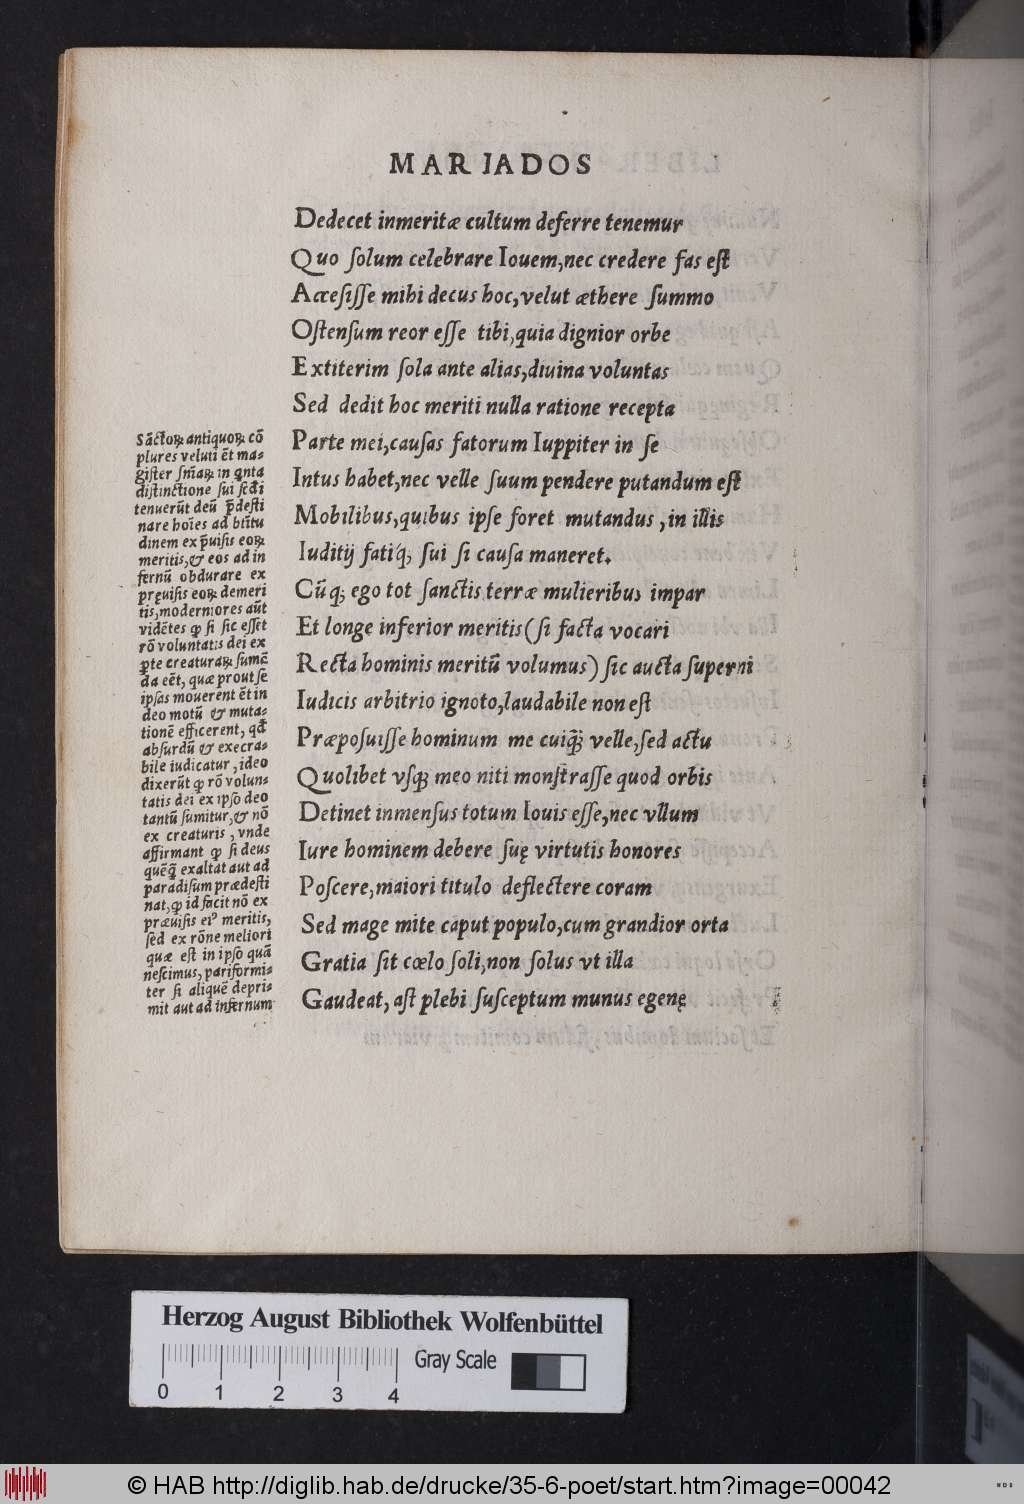 MARIADOS
Dedecet inmeritæ cultum deferre tenemur
Quo ſolum celebrare Iouem,nec credere fas eſt
Acceſiſſe mihi decus hoc,velut æthere ſummo
Oſtenſum reor eſſe tibi,quia dignior orbe
Extiterim ſola ante alias,diuina voluntas
Sed dedit hoc meriti nulla ratione recepta
Parte mei,cauſas fatorum Iuppiter in ſe
Intus habet,nec velle ſuum pendere putandum eſt
Mobilibus,quibus ipſe foret mutandus ,in illis
Iuditij fatiq́; ſui ſi cauſa maneret.
Cũq; ego tot ſanctis terræ mulieribus impar
Et longe inferior meritis(ſi facta vocari
Recta hominis meritũ volumus) ſic aucta ſuperni
Iudicis arbitrio ignoto,laudabile non eſt
Præpoſuiſſe hominum me cuiq̃; velle,ſed actu
Quolibet vſq; meo niti monſtraſſe quod orbis
Detinet inmenſus totum Iouis eſſe,nec vllum
Iure hominem debere ſuę virtutis honores
Poſcere,maiori titulo deflectere coram
Sed mage mite caput populo,cum grandior orta
Gratia ſit cœlo ſoli,non ſolus vt illa
Gaudeat, aſt plebi ſuſceptum munus egenę
Sãctoꝝ antiquoꝝ cõ
plures veluti ẽt ma-
giſter ſniaꝝ in qnta
diſtinctione ſui ſcdi
tenuerũt deũ p̃deſti
nare hoies ad btitu
dinem ex p̃uiſis eoꝝ
meritis,& eos ad in
fernũ obdurare ex
pręuiſis eoꝝ demeri
tis,moderniores aũt
vidẽtes ꝙ ſi ſic eſſet
rõ voluntatis dei ex
ꝑte creaturaꝝ ſumẽ
da eẽt, quæ prout ſe
ipſas mouerent ẽt in
deo motũ & muta-
tionẽ efficerent, qd̃
abſurdũ & execra-
bile iudicatur, ideo
dixerũt ꝙ rõ volun-
tatis dei ex ipſo deo
tantũ ſumitur,& nõ
ex creaturis , vnde
affirmant ꝙ ſi deus
quẽq̃ exaltat aut ad
paradiſum prædeſti
nat,ꝙ id facit nõ ex
præuiſis eiꝰ meritis,
ſed ex rõne meliori
quæ eſt in ipſo quã
neſcimus, pariformi-
ter ſi aliquẽ depri-
mit aut ad infernum
Herzog August Bibliothek Wolfenbüttel
Gray Scale
0 1 2 3 4
© HAB http://diglib.hab.de/drucke/35-6-poet/start.htm?image=00042